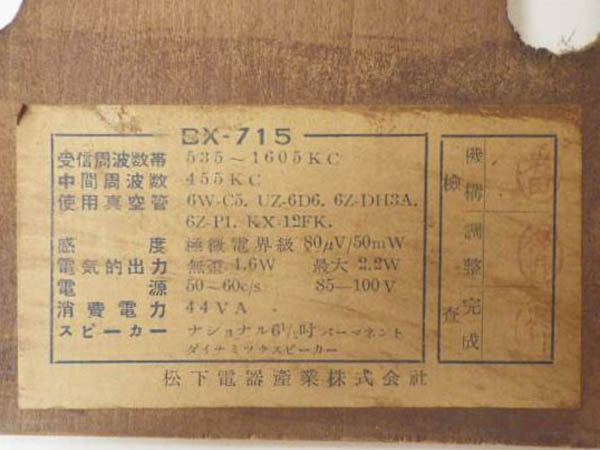 BX-715
受信周波数帯 535～1605KC
中間周波数 455KC
使用真空管 6W-C5, UZ-6D6, 6Z-DH3A,
6Z-P1, KX-12FK,
感度 極微電界級 80μV/50mW
電気的出力 無歪 1.6W 最大 2.2W
電源 50～60c/s 85―100V
消費電力 44VA
スピーカー ナショナル6½吋パーマネント
ダイナミックスピーカー
松下電器産業株式会社
検査
機構
調整
完成